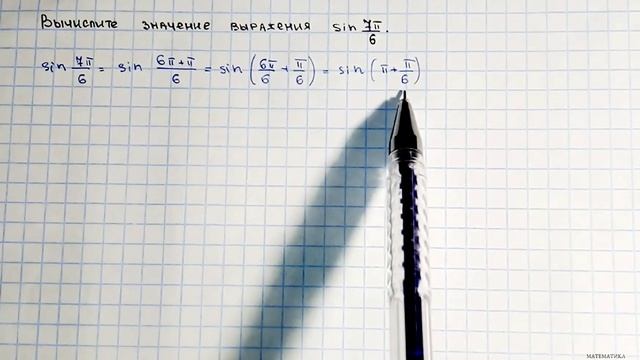 Вычислите значение выражения sin 7π/6.
sin 7π/6 = sin 6π+π/6 = sin (6π/6 + π/6) = sin (π + π/6)
МАТЕМАТИКА